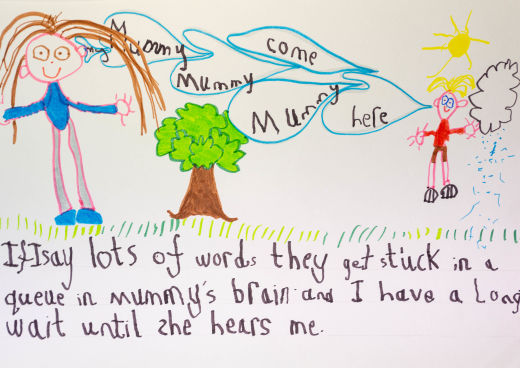 Mummy
come
Mummy
Mummy
here
If I say lots of words they get stuck in a
queue in Mummy's brain and I have a Long
wait until she hears me.